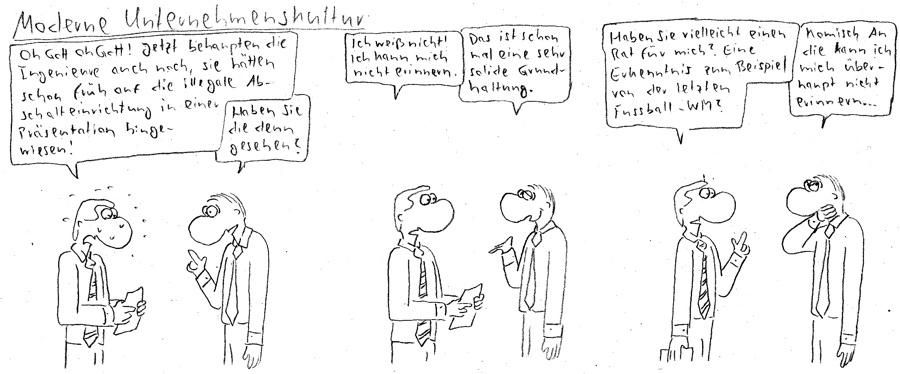 Moderne Unternehmenskultur
Oh Gott oh Gott! Jetzt behaupten die
Ingenieure auch noch, sie hätten
schon früh auf die illegale Ab-
schalteinrichtung in einer
Präsentation hinge-
wiesen!
Haben Sie
die denn
gesehen?
Ich weiß nicht!
Ich kann mich
nicht erinnern.
Das ist schon
mal eine sehr
solide Grund-
haltung.
Haben Sie vielleicht einen
Rat für mich? Eine
Erkenntnis zum Beispiel
von der letzten
Fussball-WM?
Komisch An
die kann ich
mich über-
haupt nicht
erinnern...